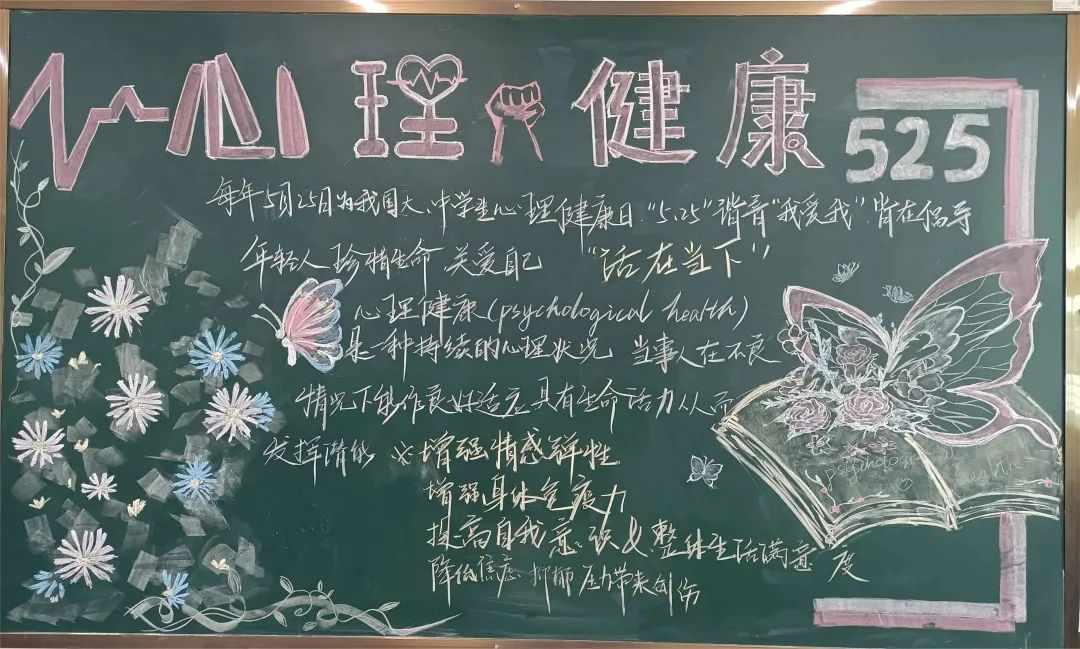 心理健康 525
每年5月25日为我国大、中学生心理健康日 "5.25"谐音"我爱我",旨在倡导
年轻人珍惜生命 关爱自己 "活在当下"
心理健康(psychological health)
是一种持续的心理状况 当事人在不良
情况下能作良好适应 具有生命活力 从而
发挥潜能 ※增强情感弹性
增强身体免疫力
提高自我意识&整体生活满意度
降低焦虑 抑郁 压力带来创伤
psychological
health